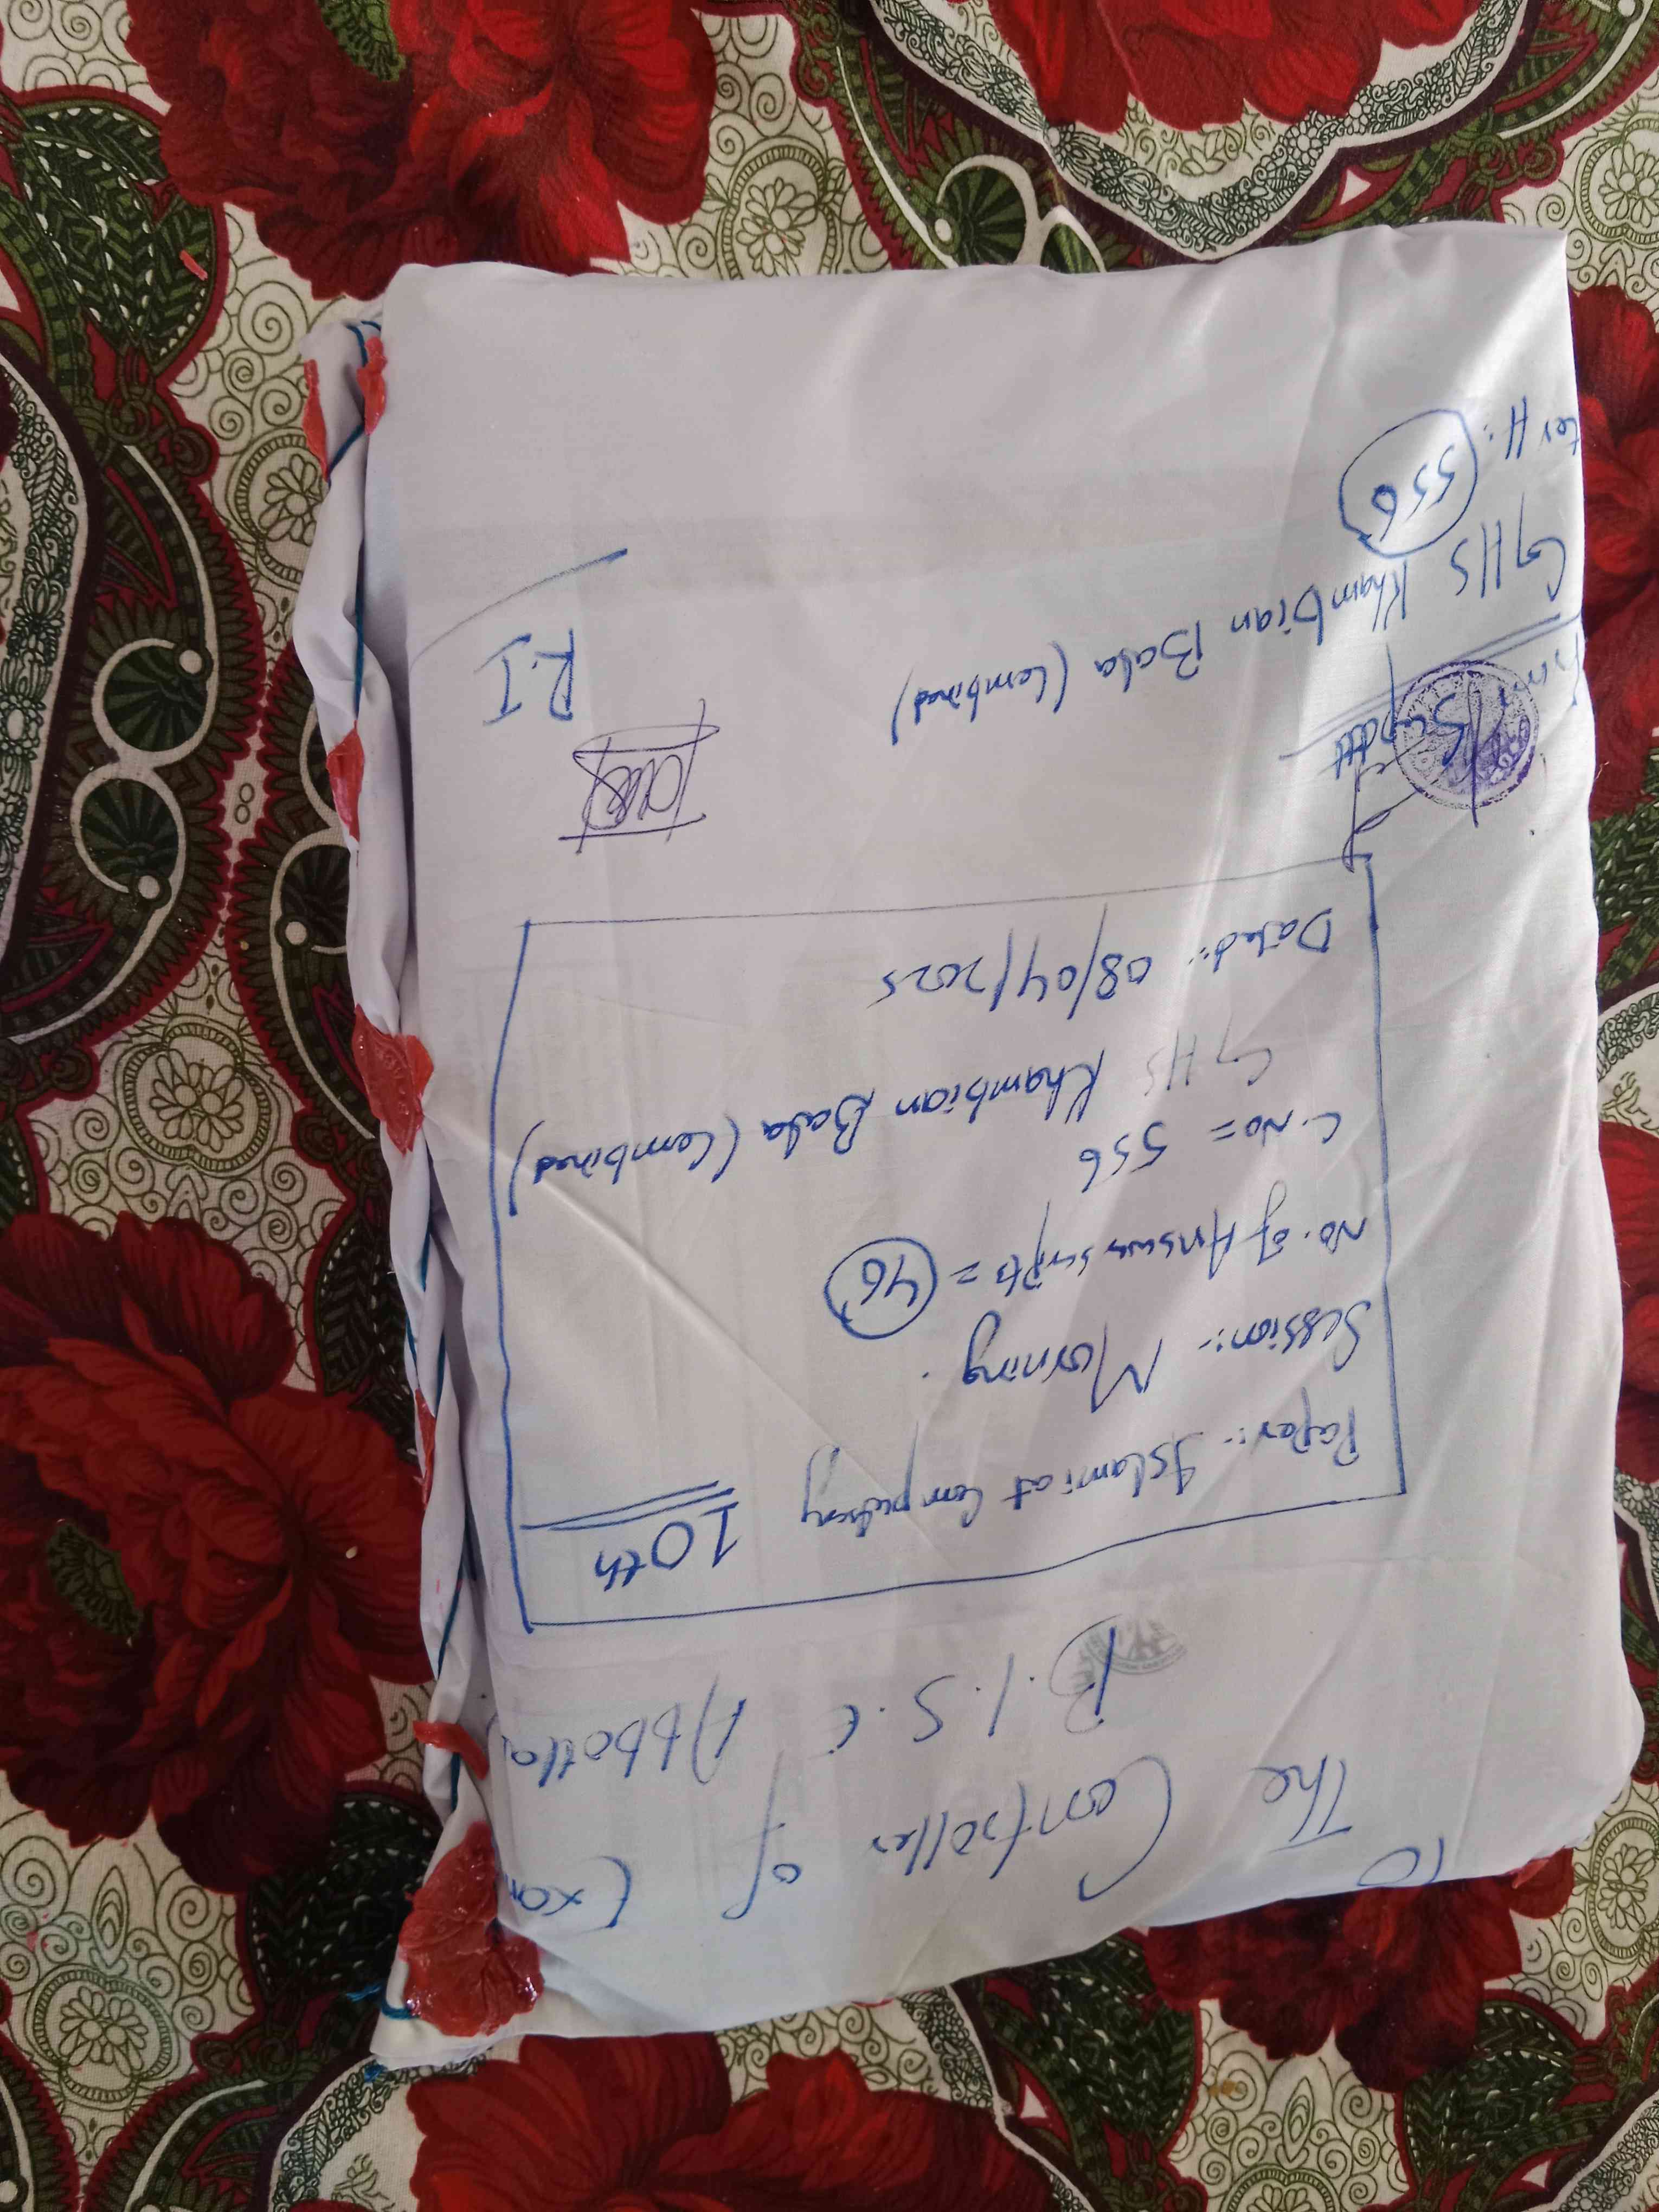 To
The Controller of Exam
B.I.S.E Abbotta
10th
Paper:- Islamiat Compulsory
Session:- Morning.
No. of Answer scripts = 46
C.No = 556
GHS Khambian Bala (Combined)
Dated:- 08/04/2025
Supdtt
R.I
GHS Khambian Bala (Combined)
ter #: 556